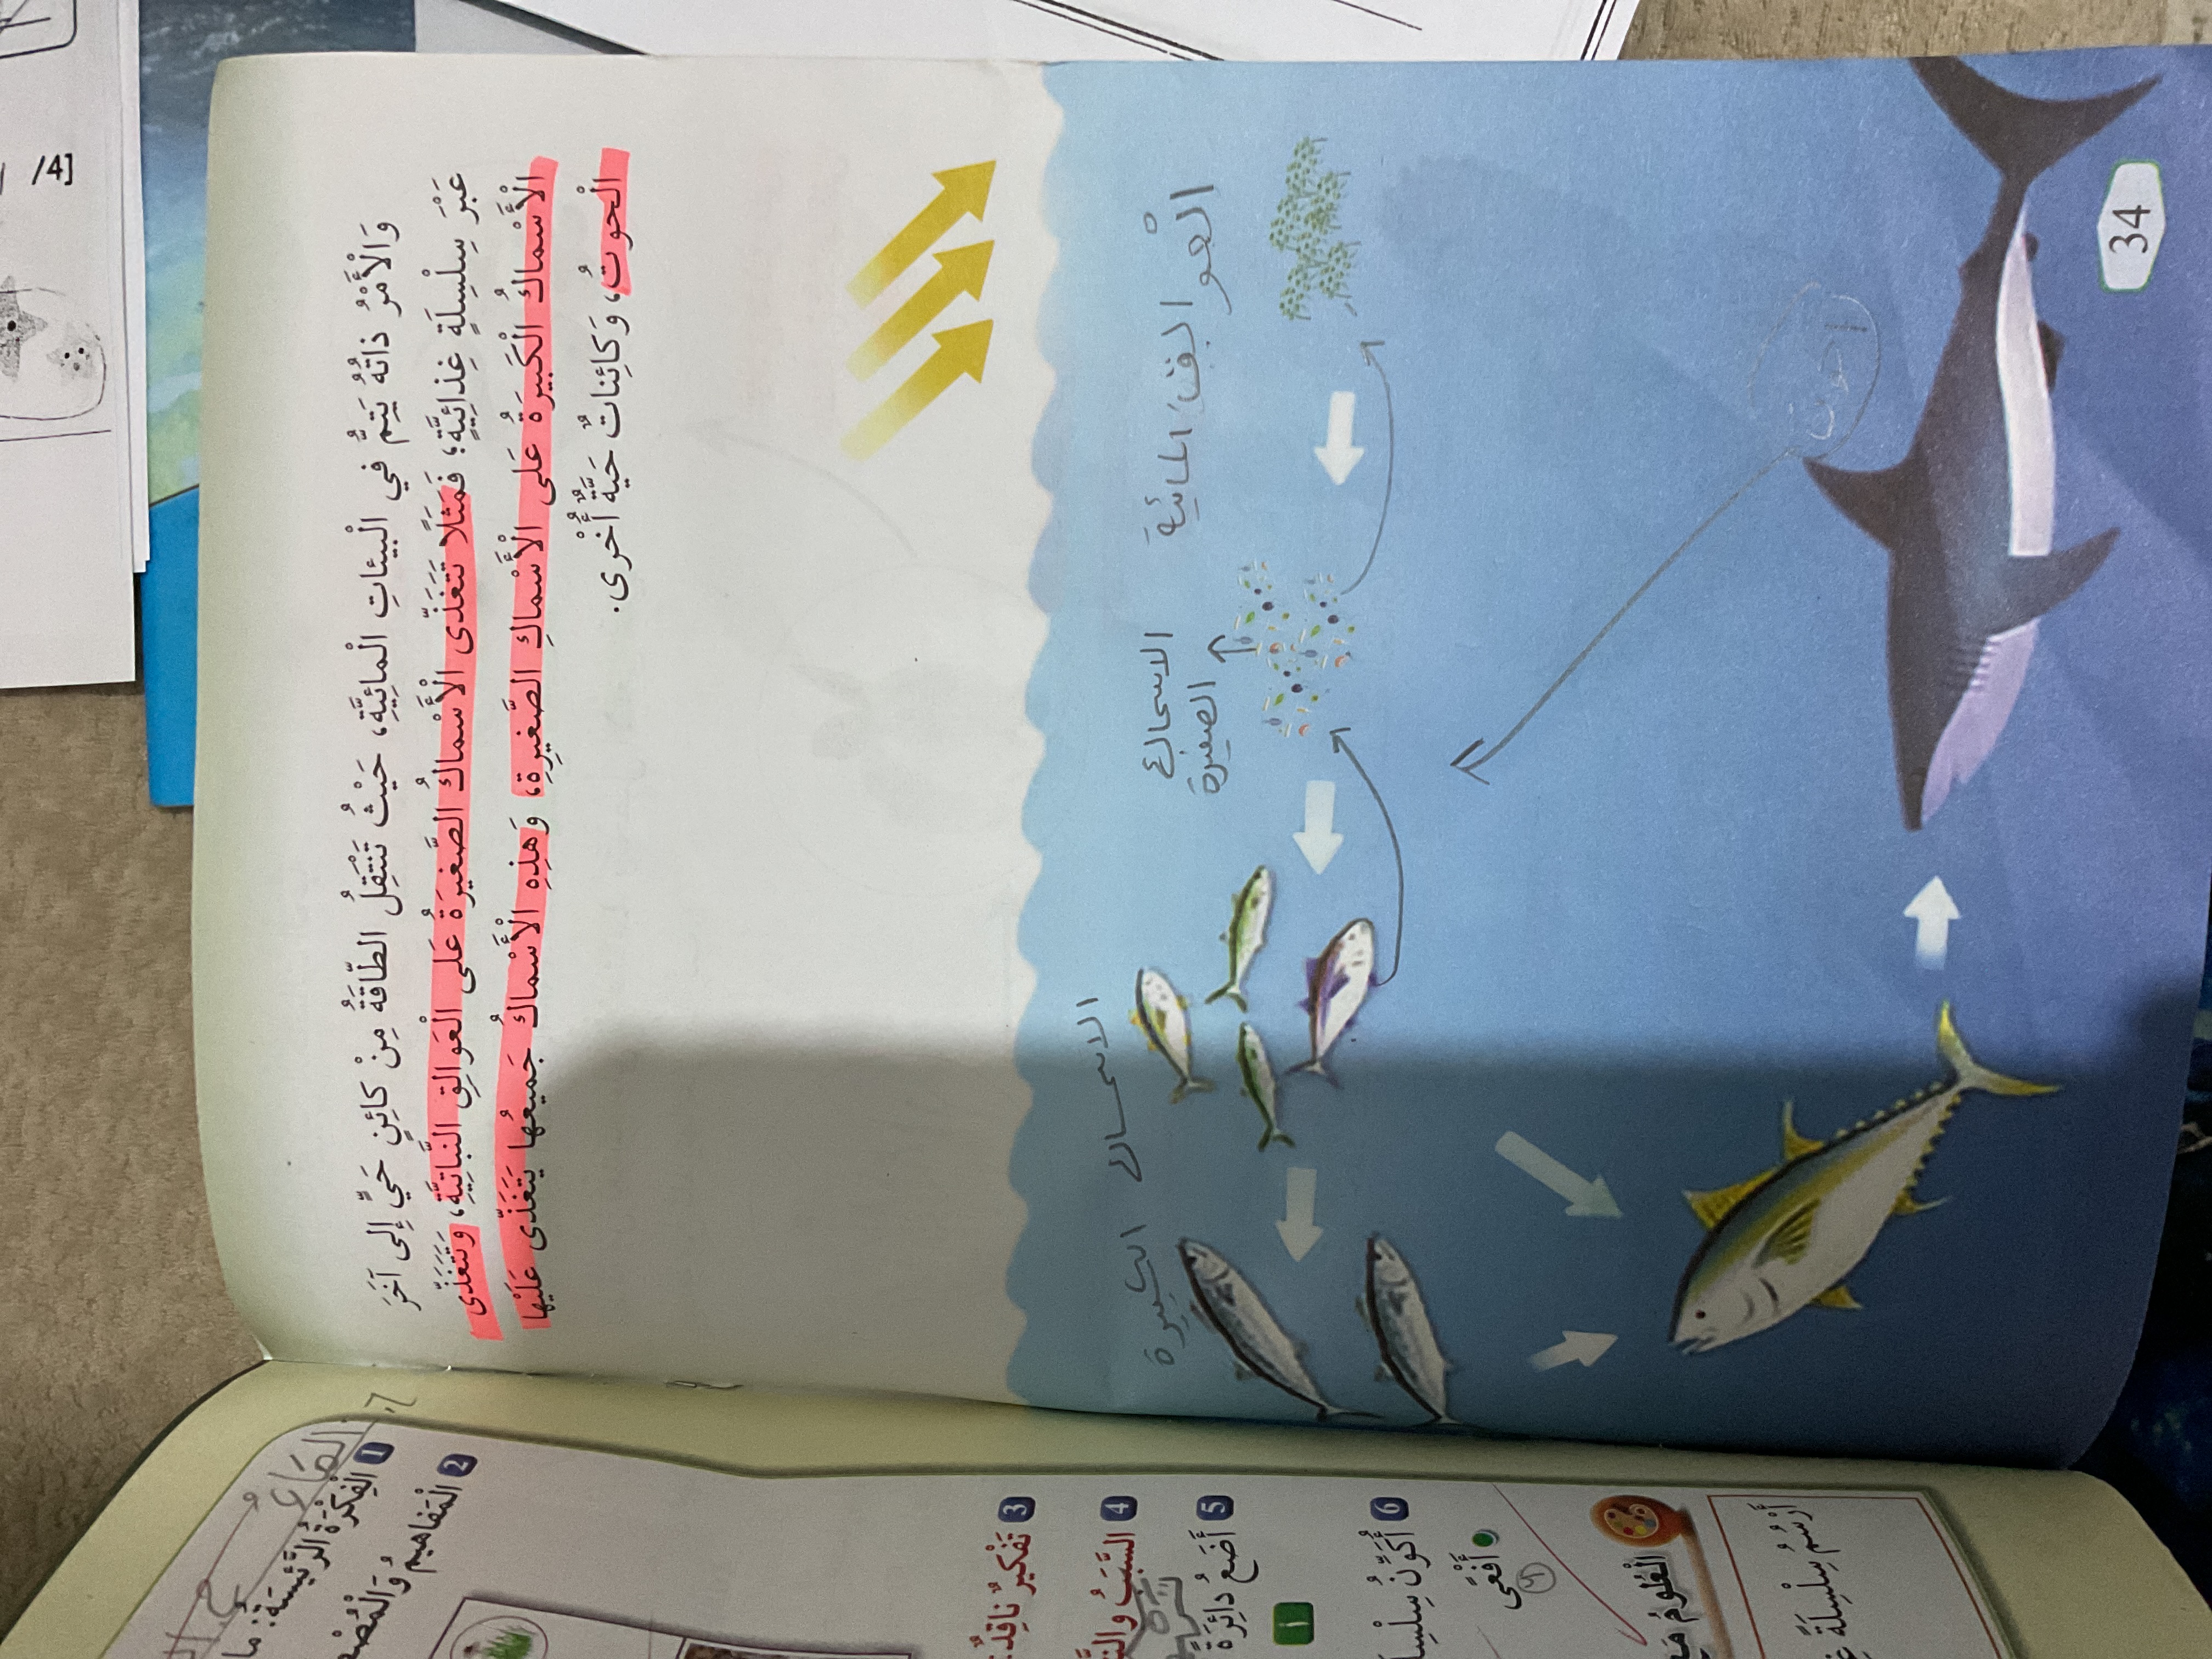 وَالْأَمْرُ ذاتُهُ يَتِمُّ في الْبيئاتِ الْمائِيَّةِ، حَيْثُ تَنْتَقِلُ الطّاقَةُ مِنْ كائِنٍ حَيٍّ إِلى آخَرَ
عَبْرَ سِلْسِلَةٍ غِذائِيَّةٍ؛ فَمَثَلًا تَتَغَذّى الْأَسْماكُ الصَّغيرَةُ عَلى الْعَوالِقِ النَّباتِيَّةِ، وَتَتَغَذّى
الْأَسْماكُ الْكَبيرَةُ عَلى الْأَسْماكِ الصَّغيرَةِ، وَهذِهِ الْأَسْماكُ جَميعُها يَتَغَذّى عَلَيْها
الْحوتُ، وَكائِناتٌ حَيَّةٌ أُخْرى.
المائية
الاسماك
الصغيرة
الاسماك الكبيرة
34
1 الْفِكْرَةُ الرَّئيسَةُ: ما
2 الْمَفاهيمُ وَالْمُصْ
3 تَفْكيرٌ ناقِدٌ
4 السَّبَبُ وَالنَّ
5 أَضَعُ دائِرَةً
أ
6 أُكَوِّنُ سِلْسِلَ
أَفْعًى
الْعُلومُ مَعَ
أَرْسُمُ سِلْسِلَةً غِ
/4]